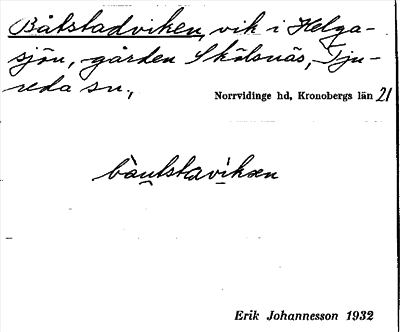 Båtstadviken, vik i Helga-
sjön, gården Skälsnäs, Tju-
reda sn,
Norrvidinge hd, Kronobergs län 21
bàutstavikæn
Erik Johannesson 1932